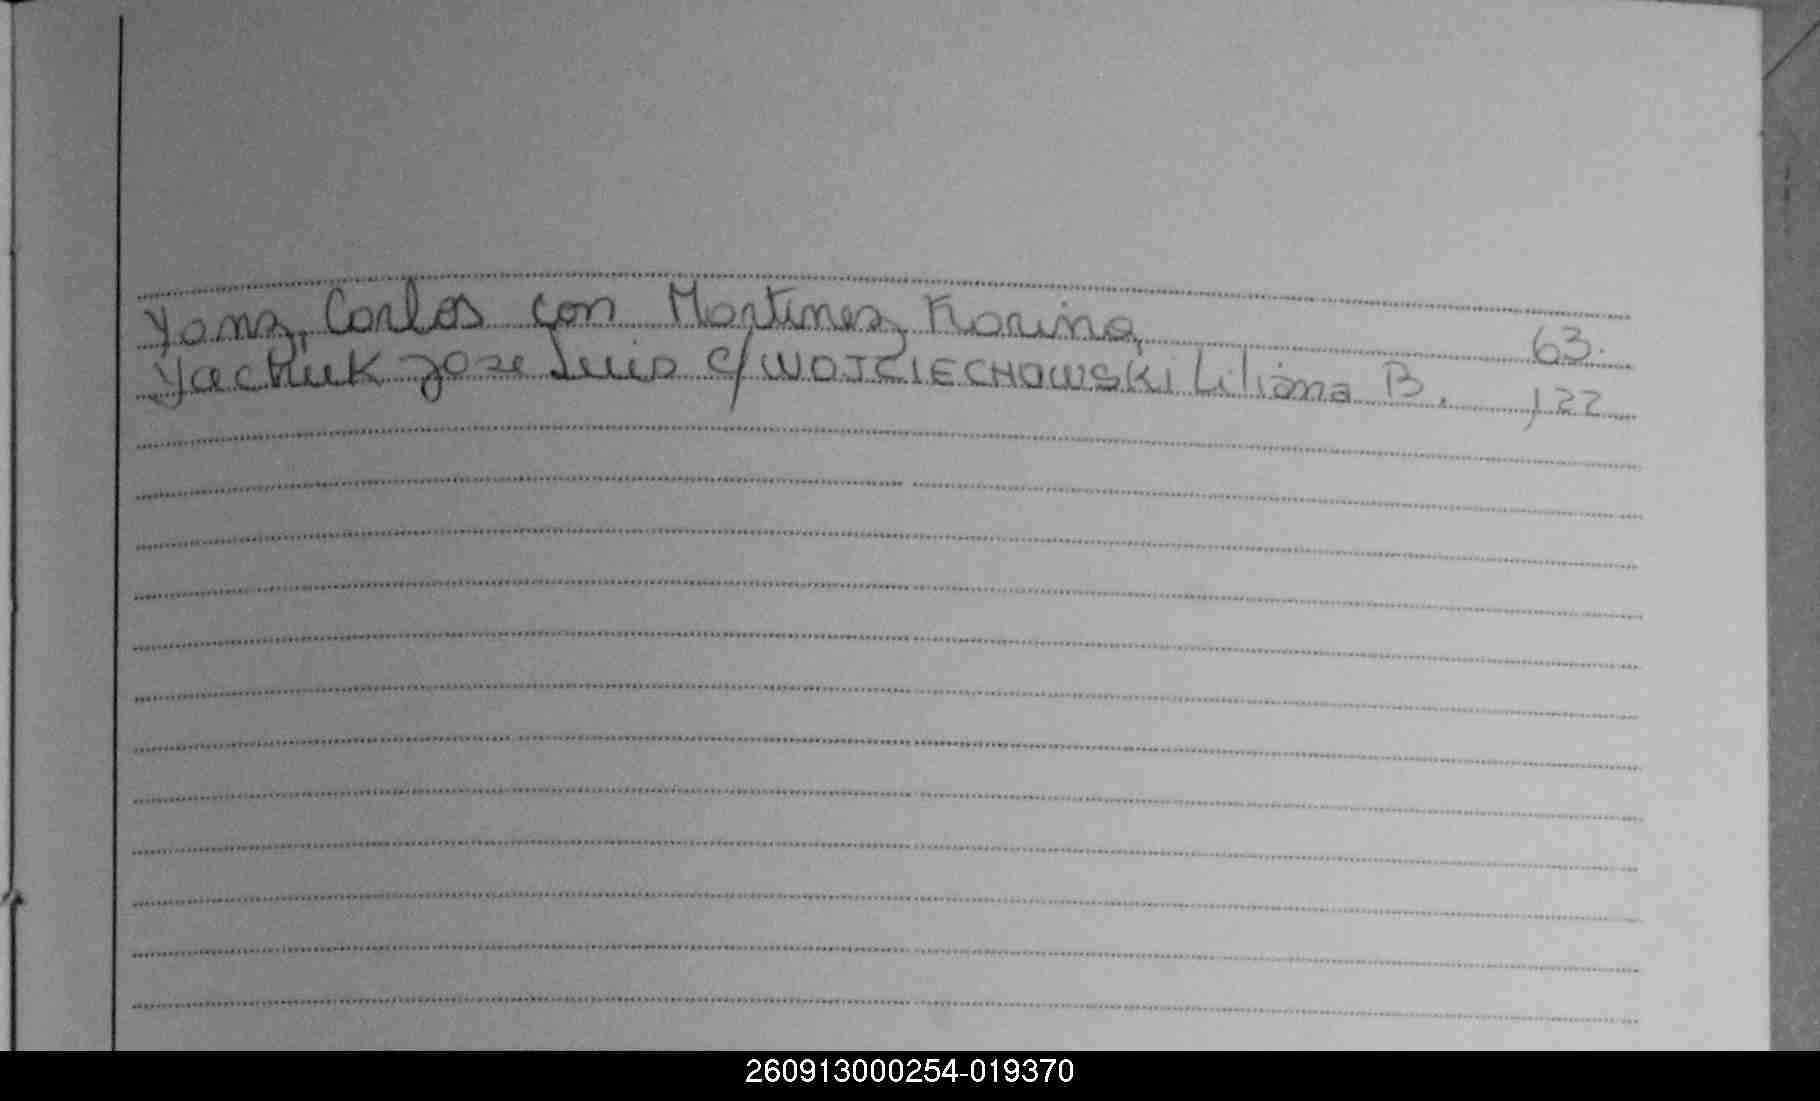 Yanz, Carlos con Martinez Karina 63.
Yachuk Jose Luis c/ WOJCIECHOWSKI Liliana B. 122
260913000254-019370